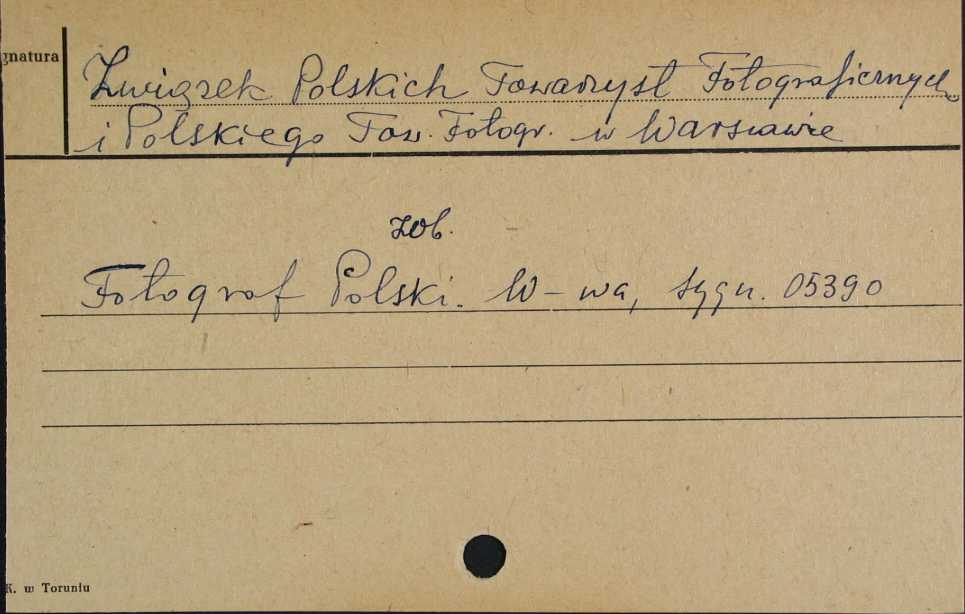 gnatura
Związek Polskich Towarzyst Fotograficznych
i Polskiego Tow. Fotogr. w Warszawie
zob.
Fotograf Polski. W-wa, sygn. 05390
K. w Toruniu